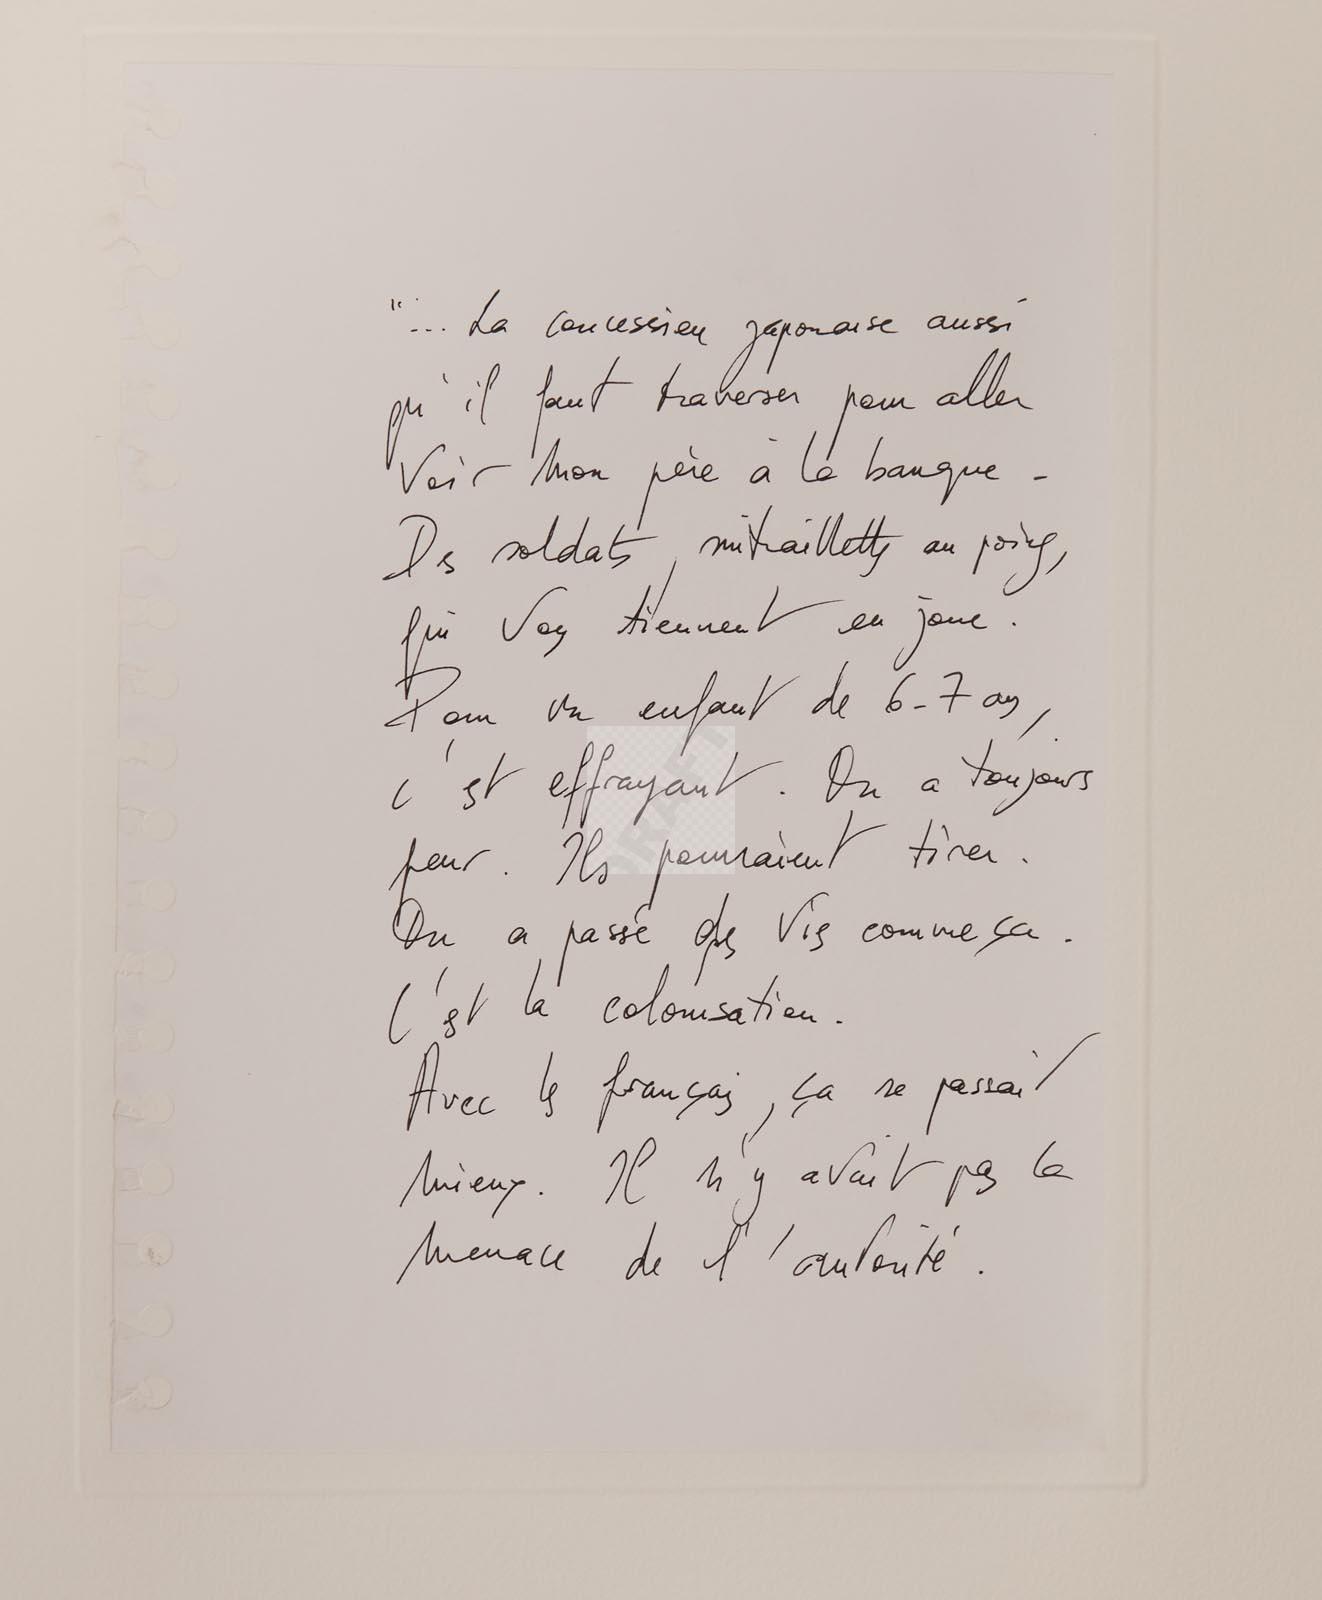 "... La concession japonaise aussi
qu'il faut traverser pour aller
voir mon père à la banque -
Des soldats, mitraillettes au poing,
qui vous tiennent en joue.
Pour un enfant de 6-7 ans,
c'est effrayant. On a toujours
peur. Ils pourraient tirer.
On a passé des vies comme ça.
C'est la colonisation.
Avec les français, ça se passait
mieux. Il n'y avait pas la
menace de l'autorité.
DRAFT